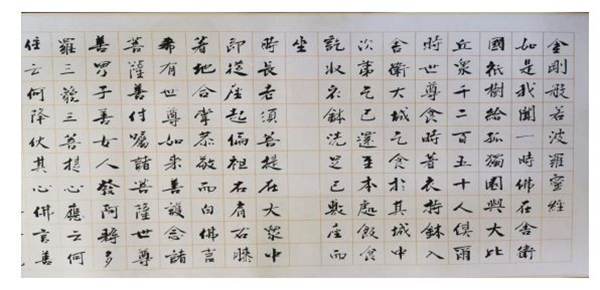 金剛般若波羅蜜經
如是我聞一時佛在舍衛
國祇樹給孤獨園與大比
丘眾千二百五十人俱爾
時世尊食時著衣持鉢入
舍衛大城乞食於其城中
次第乞已還至本處飯食
訖收衣鉢洗足已敷座而
坐
時長老須菩提在大眾中
即從座起偏袒右肩右膝
著地合掌恭敬而白佛言
希有世尊如來善護念諸
菩薩善付囑諸菩薩世尊
善男子善女人發阿耨多
羅三藐三菩提心應云何
住云何降伏其心佛言善